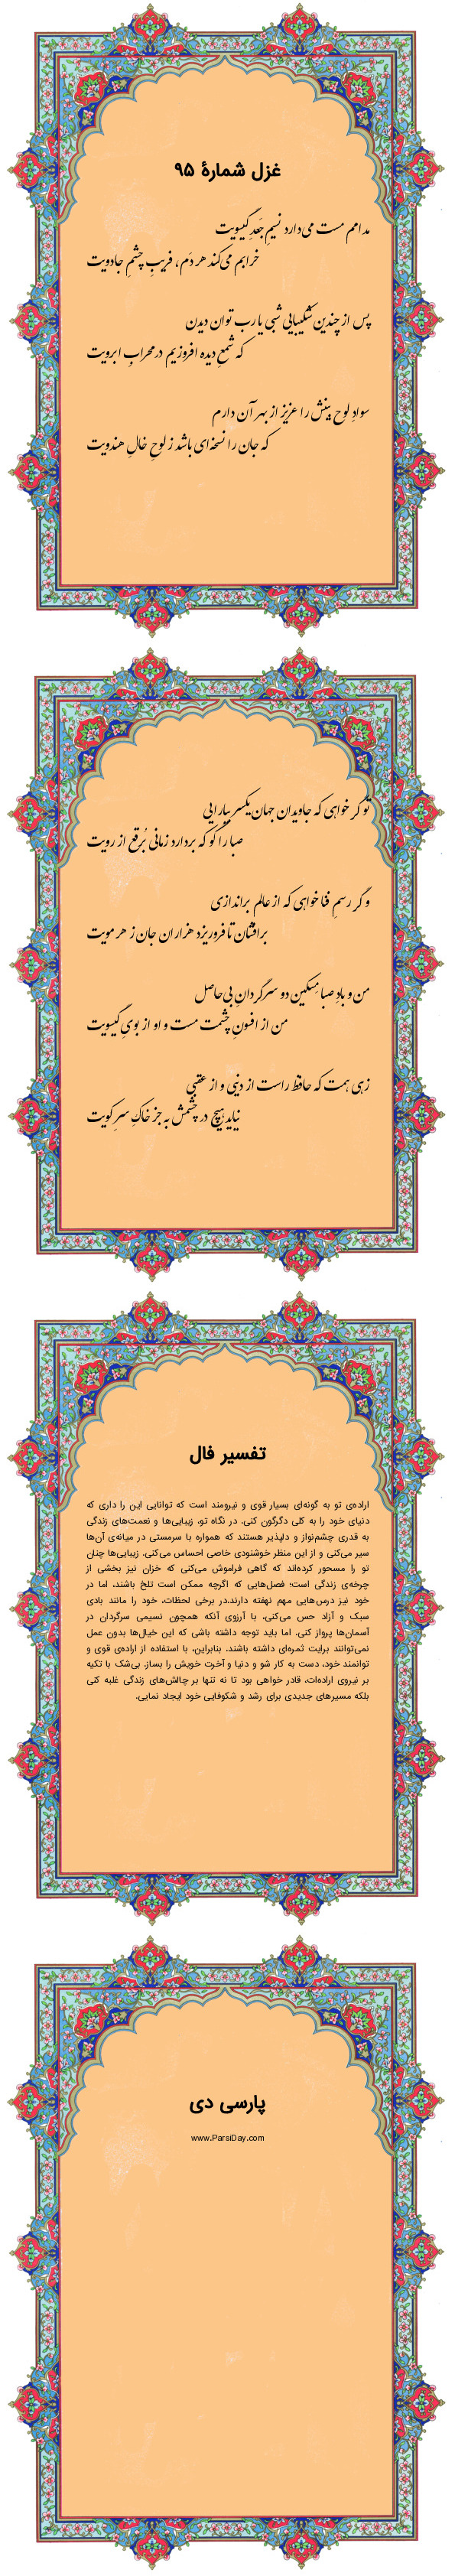 غزل شمارهٔ ۹۵
مدامم مست می‌دارد نسیمِ جَعدِ گیسویت
خرابم می‌کند هر دَم، فریبِ چشمِ جادویت
پس از چندین شکیبایی شبی یا رب توان دیدن
که شمعِ دیده افروزیم در محرابِ ابرویت
سوادِ لوحِ بینش را عزیز از بهرِ آن دارم
که جان را نسخه‌ای باشد ز لوحِ خالِ هندویت
تو گر خواهی که جاویدان جهان یکسر بیارایی
صبا را گو که بردارد زمانی بُرقع از رویت
و گر رسمِ فنا خواهی که از عالم براندازی
برافشان تا فروریزد هزاران جان ز هر مویت
من و بادِ صبا مسکین دو سرگردانِ بی‌حاصل
من از افسونِ چشمت مست و او از بویِ گیسویت
زهی همت که حافظ راست از دنیی و از عقبی
نیاید هیچ در چشمش به جز خاکِ سرِ کویت
تفسیر فال
اراده‌ی تو به گونه‌ای بسیار قوی و نیرومند است که توانایی این را داری که
دنیای خود را به کلی دگرگون کنی. در نگاه تو، زیبایی‌ها و نعمت‌های زندگی
به قدری چشم‌نواز و دلپذیر هستند که همواره با سرمستی در میانه‌ی آن‌ها
سیر می‌کنی و از این منظر خوشنودی خاصی احساس می‌کنی. زیبایی‌ها چنان
تو را مسحور کرده‌اند که گاهی فراموش می‌کنی که خزان نیز بخشی از
چرخه‌ی زندگی است؛ فصل‌هایی که اگرچه ممکن است تلخ باشند، اما در
خود نیز درس‌هایی مهم نهفته دارند.در برخی لحظات، خود را مانند بادی
سبک و آزاد حس می‌کنی، با آرزوی آنکه همچون نسیمی سرگردان در
آسمان‌ها پرواز کنی. اما باید توجه داشته باشی که این خیال‌ها بدون عمل
نمی‌توانند برایت ثمره‌ای داشته باشند. بنابراین، با استفاده از اراده‌ی قوی و
توانمند خود، دست به کار شو و دنیا و آخرت خویش را بساز. بی‌شک با تکیه
بر نیروی اراده‌ات، قادر خواهی بود تا نه تنها بر چالش‌های زندگی غلبه کنی
بلکه مسیرهای جدیدی برای رشد و شکوفایی خود ایجاد نمایی.
پارسی دی
www.ParsiDay.com